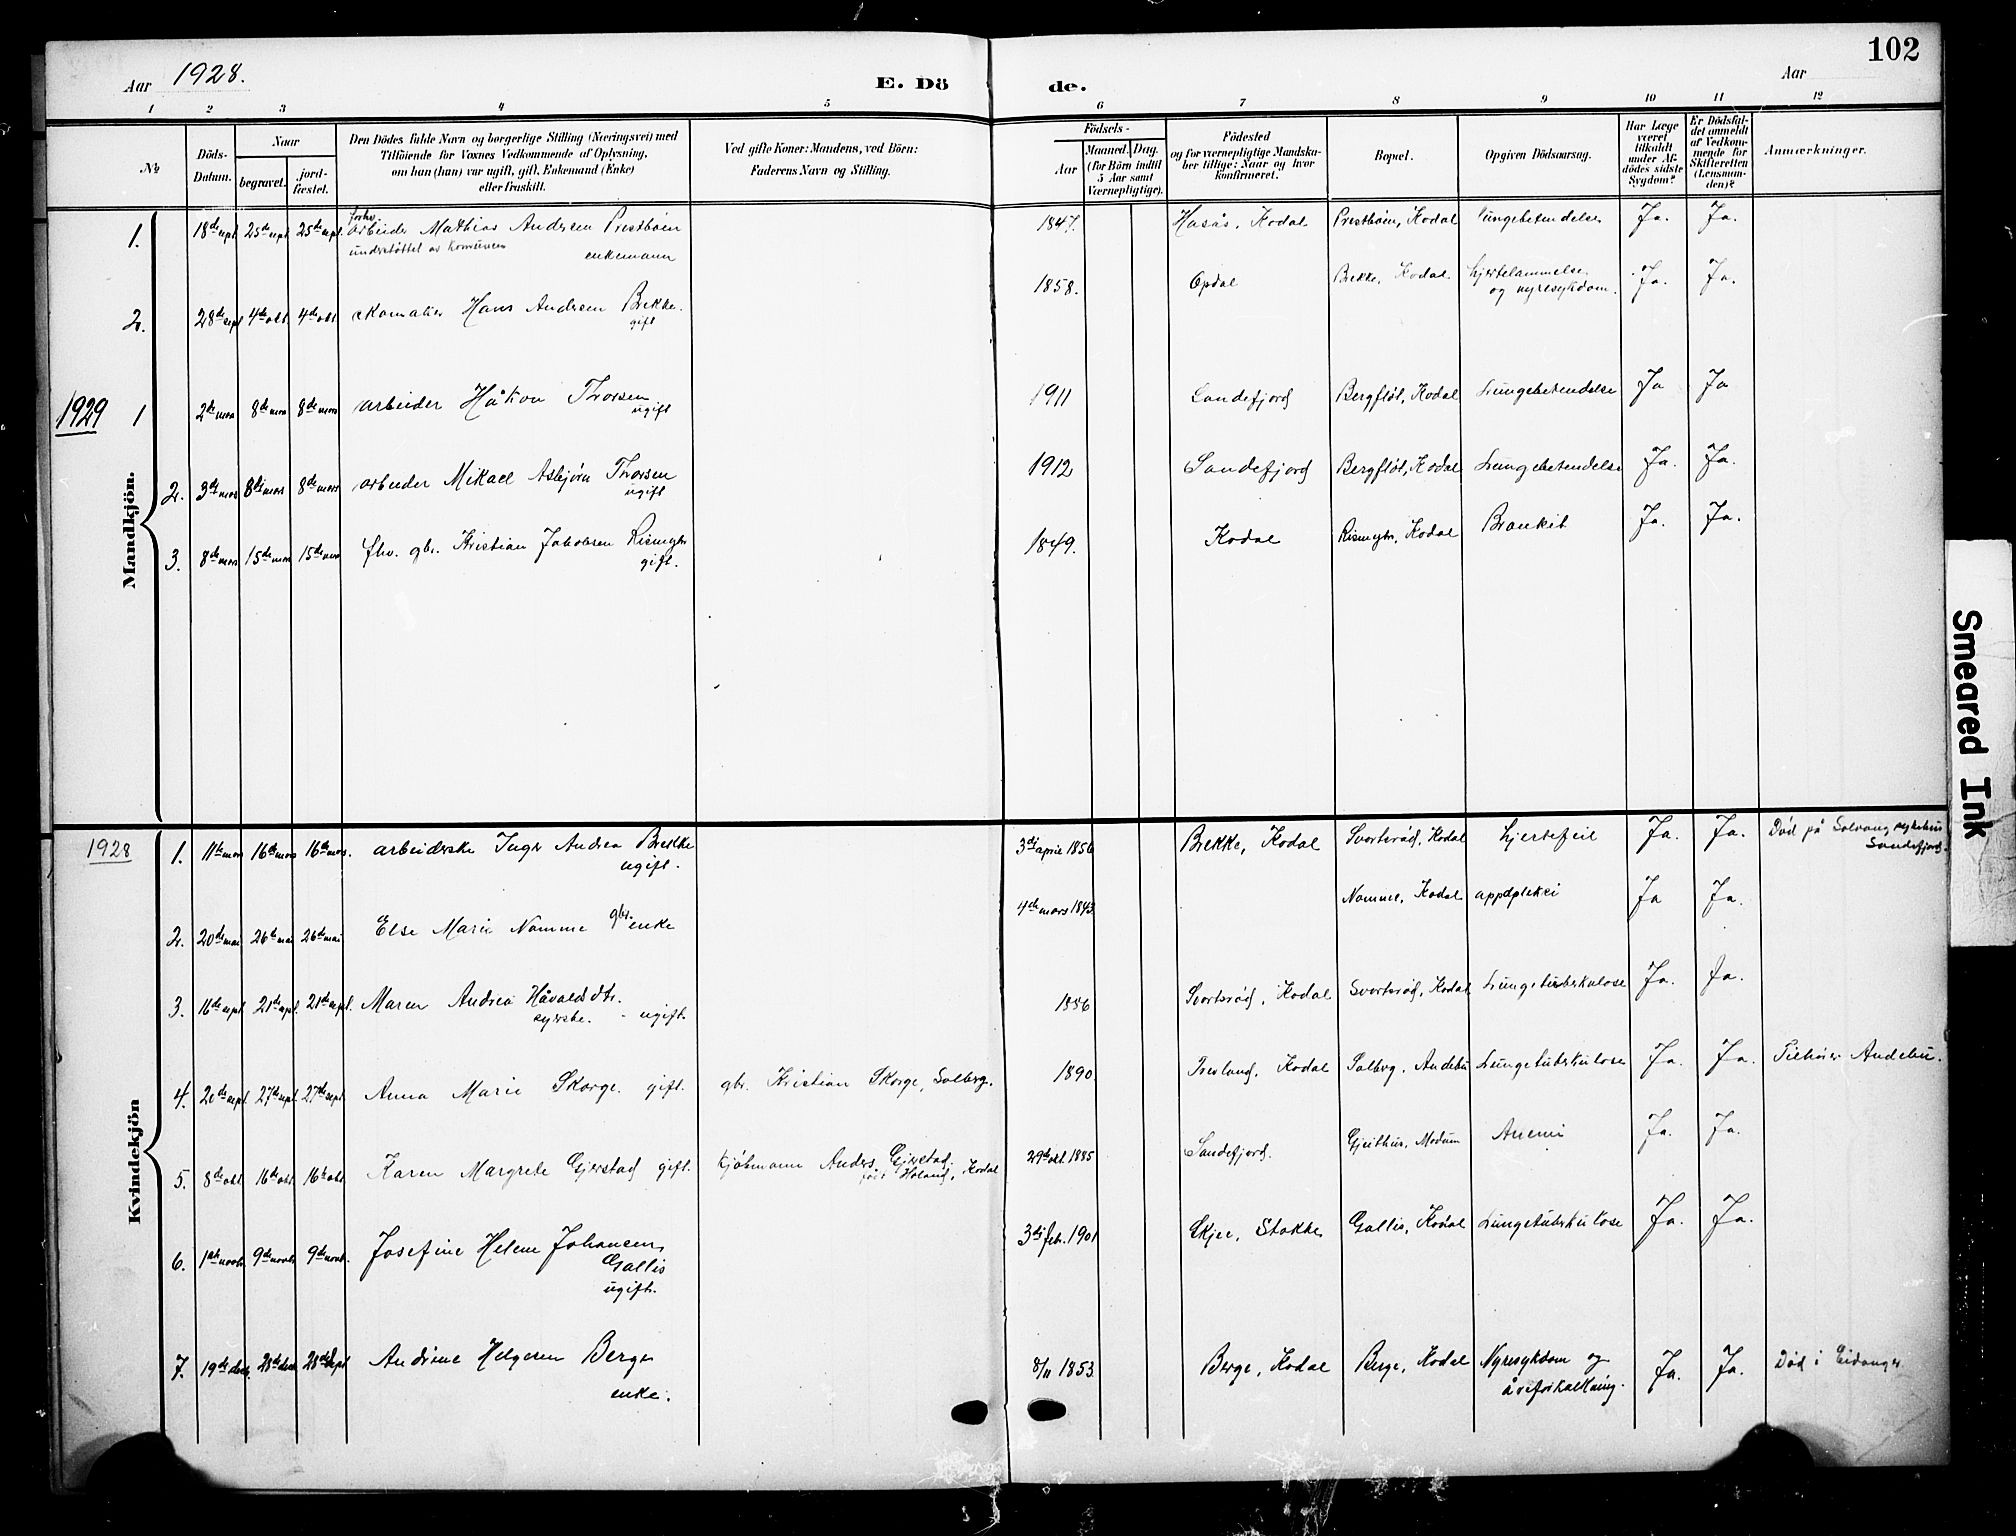 102
Aar 1928.
E. Dö de.
Aar
1 2 3 4 5 6 7 8 9 10 11 12
No
Döds-Datum.
Naar
begravet.
jord-fæstet.
Den Dödes fulde Navn og borgerlige Stilling (Næringsvei) med
Tilföiende for Voxnes Vedkommende af Oplysning,
om han (hun) var ugift, gift, Enkemand (Enke)
eller fraskilt.
Ved gifte Koner: Mandens, ved Börn:
Faderens Navn og Stilling.
Födsels-
Aar
Maaned. Dag.
(for Börn indtil
5 Aar samt
Værnepligtige).
Födested
og for værnepligtige Mandska-
ber tillige: Naar og hvor
konfirmeret.
Bopæl.
Opgiven Dödsaarsag.
Har Læge
været
tilkaldt
under Af-
dødes sidste
Sygdom?
Er Dödsfal-
det anmeldt
af Vedkom-
mende for
Skifteretten
(Lensman-
den)?
Anmærkninger.
Mandkjön.
1. 18de sept 25de sept 25de sept. forhv. arbeider Mathias Andersen Prestbøen 1847. Hasås, Kodal Prestbøen, Kodal Lungebetendelse Ja. Ja.
understøttet av Komunen enkemann
2. 28de sept 4de okt. 4de okt. skomaker Hans Andersen Brekke. 1858. Opdal Brekke, Kodal. hjertelammelse Ja. Ja.
gift og nyresykdom.
1929 1 2de mars 8de mars 8de mars arbeider Håkon Thorsen 1911 Sandefjord Bergfløt, Kodal Lungebetendelse Ja Ja
ugift
2. 3de mars 8de mars 8de mars arbeider Mikael Asbjørn Thorsen 1912 Sandefjord Bergfløt, Kodal Lungebetendelse Ja. Ja.
ugift
3. 8de mars 15de mars 15de mars fhv. gbr. Kristian Jakobsen Rismyhr 1849. Kodal Rismyhr, Kodal Bronkit Ja. Ja.
gift.
Kvindekjön
1928 1. 11te mars 16de mars 16de mars. arbeiderske Inger Andrea Brekke 3die april 1856 Brekke, Kodal Svartsrød, Kodal hjertefeil Ja. Ja. Død på Solvang sykehus
ugift. Sandefjord.
2. 20de mai 26de mai 26de mai Else Marie Nomme gbr. enke 4de mars 1843. Nomme, Kodal appoplekxi Ja Ja.
3. 16de sept 21de sept. 21de sept. Maren Andrea Håvaldsdtr. 1856 Svortsrød, Kodal Svortsrød, Kodal Lungetuberkulose Ja. Ja.
syerske. - ugift.
4. 20de sept. 27de sept. 27de sept. Anna Marie Skorge. gift. gbr. Kristian Skorge, Solberg. 1890. Trevland, Kodal Solberg, Andebu Lungetuberkulose Ja. Ja. Tilhører Andebu.
5. 8de okt. 16de okt. 16de okt. Karen Margrete Gjerstad gift. kjøbmann Anders Gjerstad, 29de okt. 1885 Sandefjord. Gjeithus, Modum Anemi Ja. Ja.
født Høland, Kodal
6. 1ste novbr. 9de novbr. 9de novbr. Josefine Helene Johansen, 3die feb. 1901 Skjee, Stokke Gallis, Kodal Lungetuberkulose Ja. Ja.
Gallis
ugift.
7. 19de des. 28de des. 28de Andrine Helgesen Berge 8/11 1853. Berge, Kodal Berge, Kodal Nyresykdom og Ja. Ja. Død i Eidanger
enke. åreforkalkning.
Smeared Ink